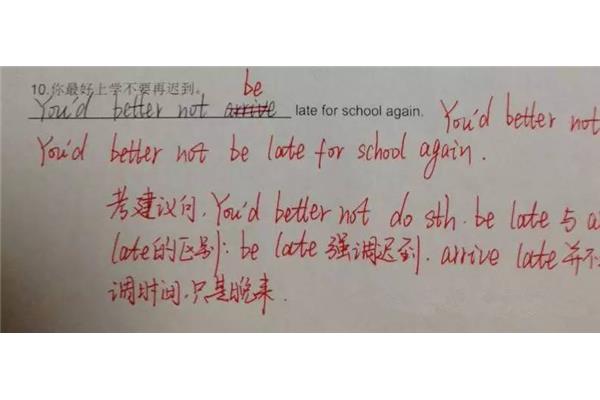 10.你最好上学不要再迟到。
be
You'd better not arrive late for school again.
You'd better not
You'd better not be late for school again.
考建议句. You'd better not do sth. be late 与 a
late的区别: be late 强调迟到. arrive late 并不
调时间,只是晚来.